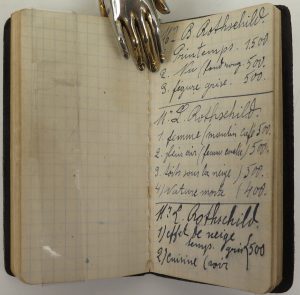 162 B. Rothschild.
Printemps. 1500.
2. Nu 500.
3. figure grise. 500.
Mr L. Rothschild.
1. femme / moulin café 500.
2. plein air / femme 500.
3. toits sous la neige / 500.
4) Nature morte / 400.
Mr L. Rothschild.
1) effet de neige
temps gris 500
2) cuisine (noir